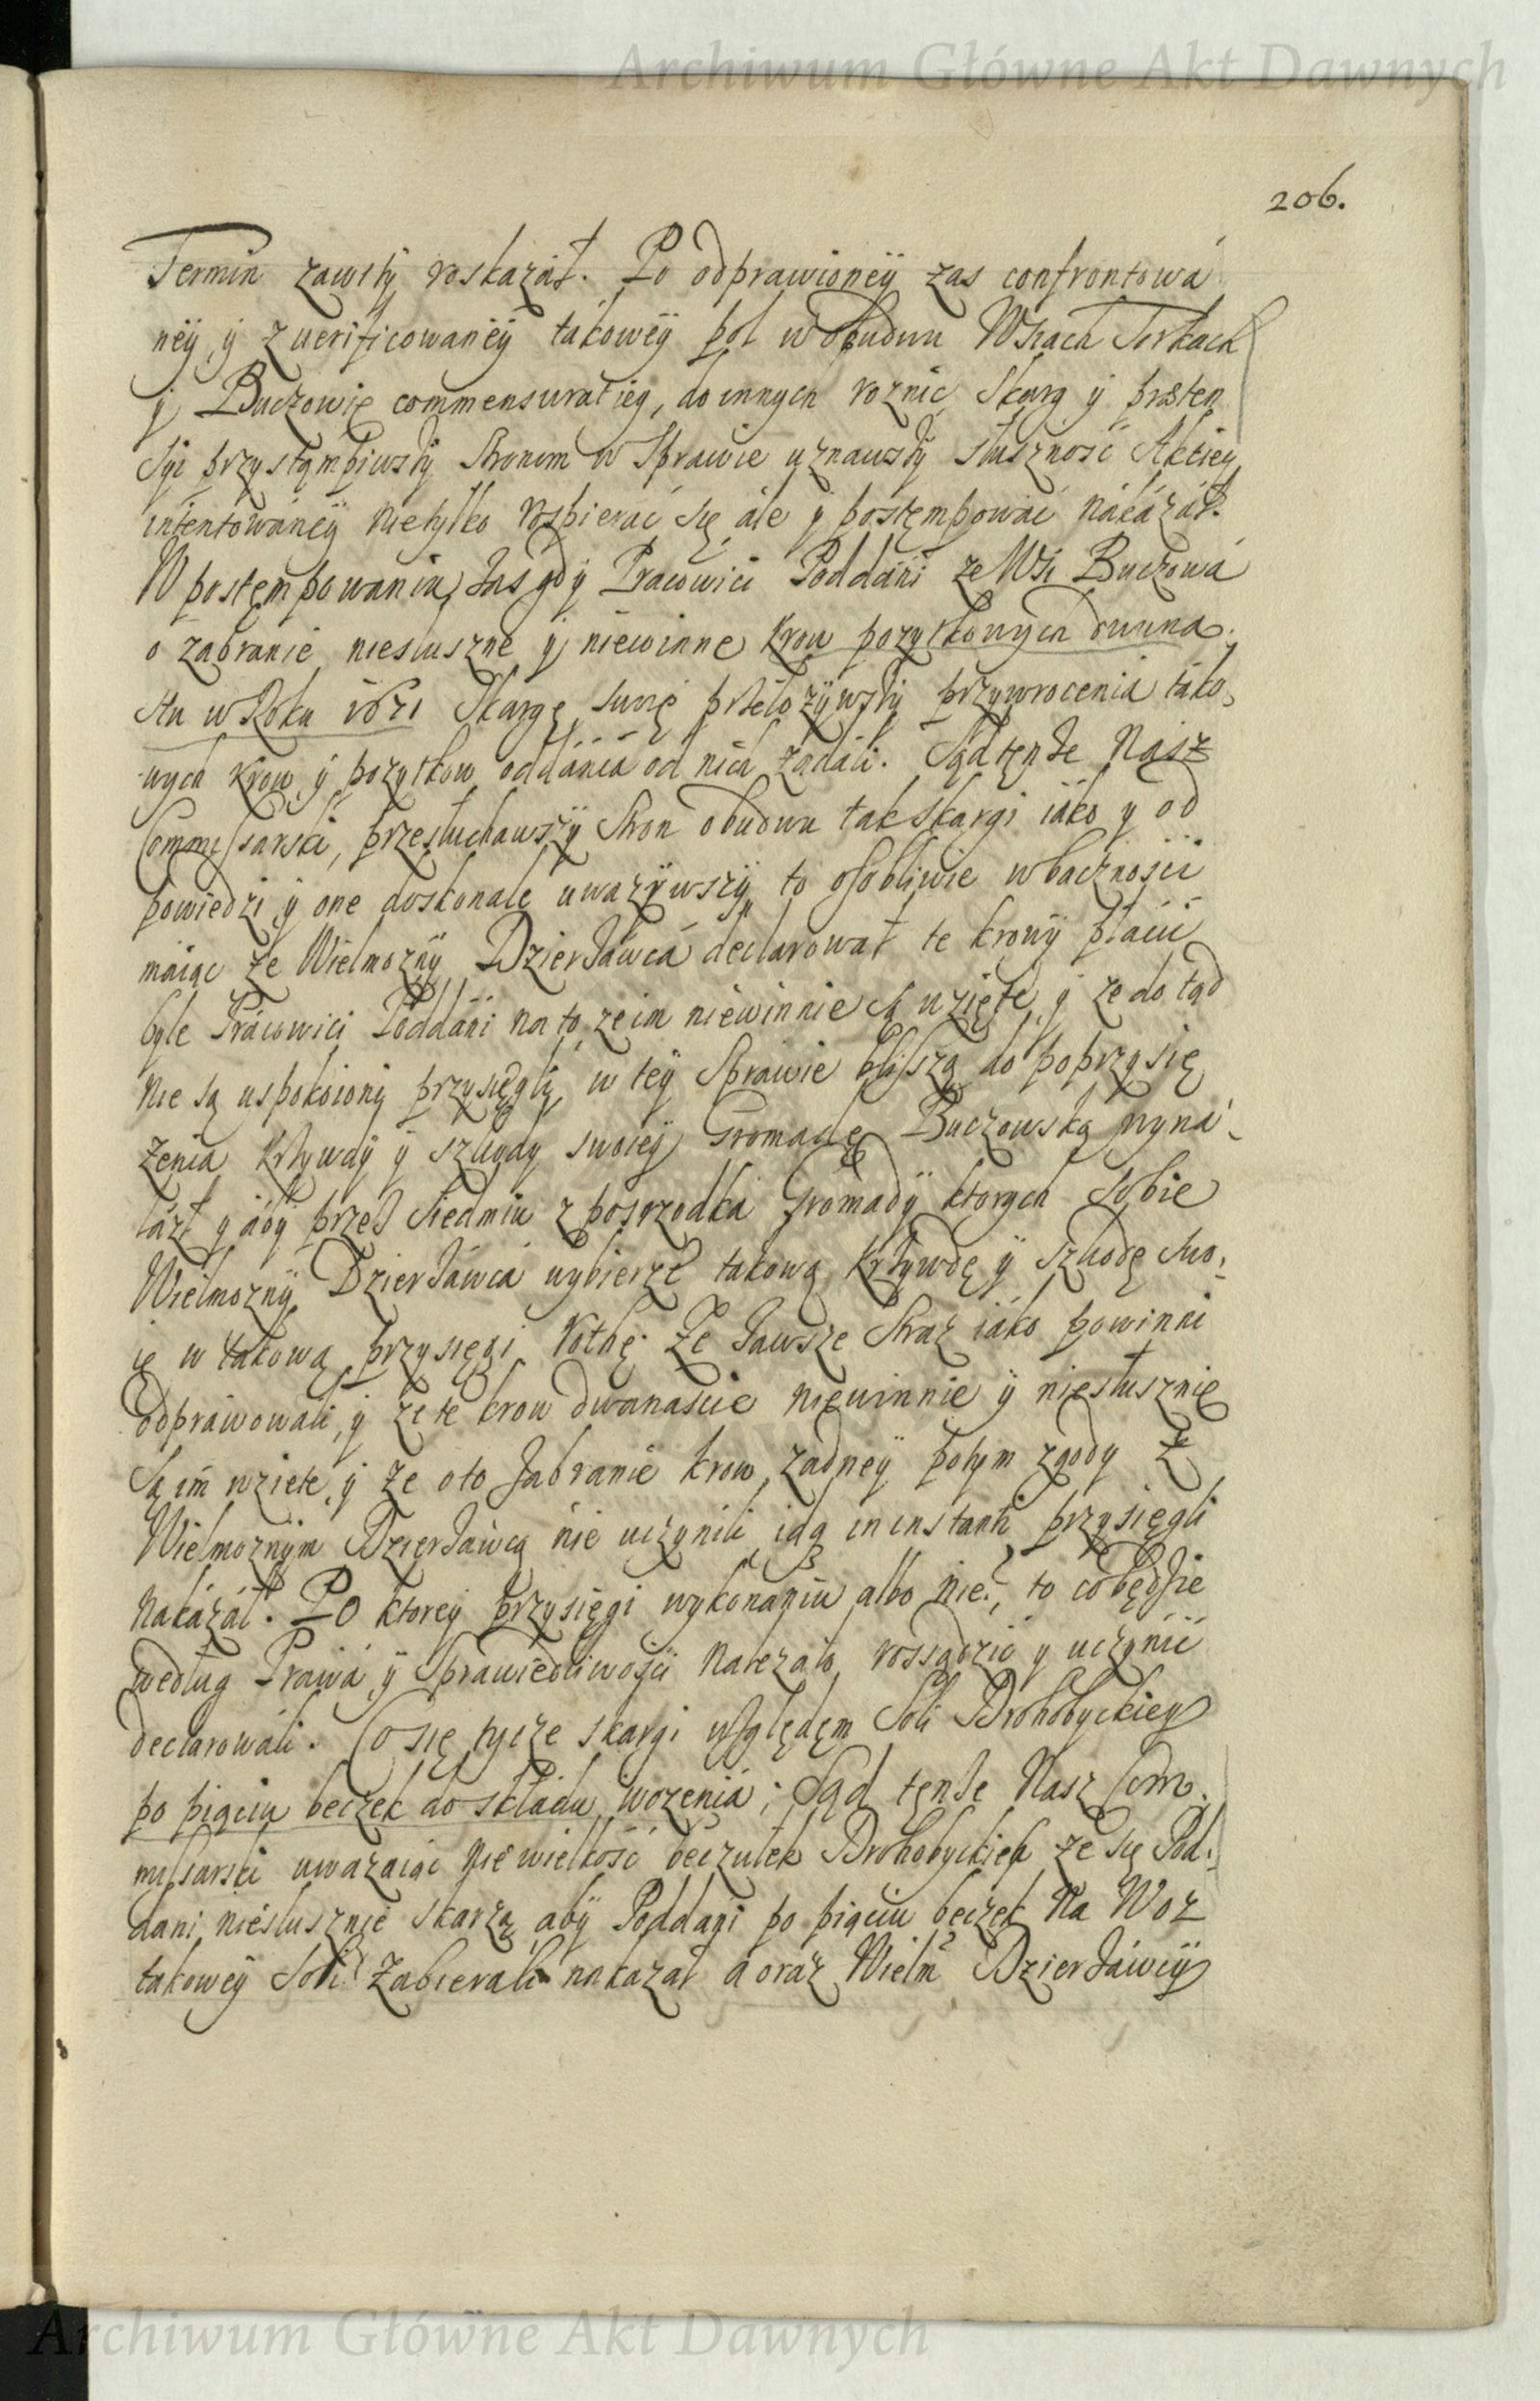 Archiwum Główne Akt Dawnych
206.
Termin zawity roskazał. Po odprawioneÿ zas confrontowá
nëÿ ÿ zuerificowanëÿ tákowëÿ pol w obudwu Wsiach Torkach
ÿ Buczowie commensuratiey, do innych roznic Skarg ÿ preten
syi przystąmpiwszÿ Stronom w Sprawie uznawszÿ słusznosć Akciey
intentowánëÿ nietylko rospieráć się ále ÿ postęmpowáć nákázáł.
W postęmpowaniu zas gdÿ Pracowici Poddáni ze Wsi Buczowá
o zabranie niesłuszne ÿ niewinne krow pozytkowych dwuna
stu w Roku 1651 Skargę swoię przełozÿwszÿ przywrocenia táko
wych krow ÿ pozytkow oddánia od nich ządáli. Sąd tęnze Nasz
Commissarski, przesłuchawszÿ Stron obudwu tak skargi iáko y od
powiedzi ÿ one doskonale uwazÿwszÿ to osobliwie w bacznosci
máiąc ze Wielmoznÿ Dzierzáwcá declarował te krowÿ płácić
byle Prácowici Poddáni na to, ze im niewinnie są wzięte ÿ ze do tąd
nie są uspokoioni przysięgli, w tëÿ Sprawie blisszą do poprzysię
zenia krzywdÿ ÿ szkody swoiëÿ Gromadę Buczowską wyná
lázł y ábÿ przez Siedmiu z posrzodka Gromadÿ ktorych sobie
Wielmoznÿ Dzierzáwcá wybierze takową krzywdę ÿ szkodę swo
ię w takową przysięgi Rothę: Ze zawsze Straz iáko powinni
odpráwowali, ÿ ze te krow dwanascie niewinnie ÿ niesłusznie
Są im wziete, ÿ ze o to zabranie krow zadnëÿ potym zgody z
Wielmoznÿm Dzierzáwcą nie uczynili iáz in instanti przysięgli
nakázáł. Po ktorëÿ przysięgi wykonániu albo nie, to co będzie
według Prawá ÿ Sprawiedliwosci nalezało rossądzić y uczynić
declarowáli. Co się tycze skargi względem Soli Drohobyckiey
po piąciu beczek do skłádu wozenia; Sąd tęnze Nasz Com
missarski uwazaiąc niewielkosć beczułek Drohobyckich ze się Pod
dani niesłusznie skarzą, abÿ Poddáni po piąciu beczek na Woz
takowëÿ Soli zabierali nakazał á oráz Wielm Dzierzáwcÿ
Archiwum Główne Akt Dawnych